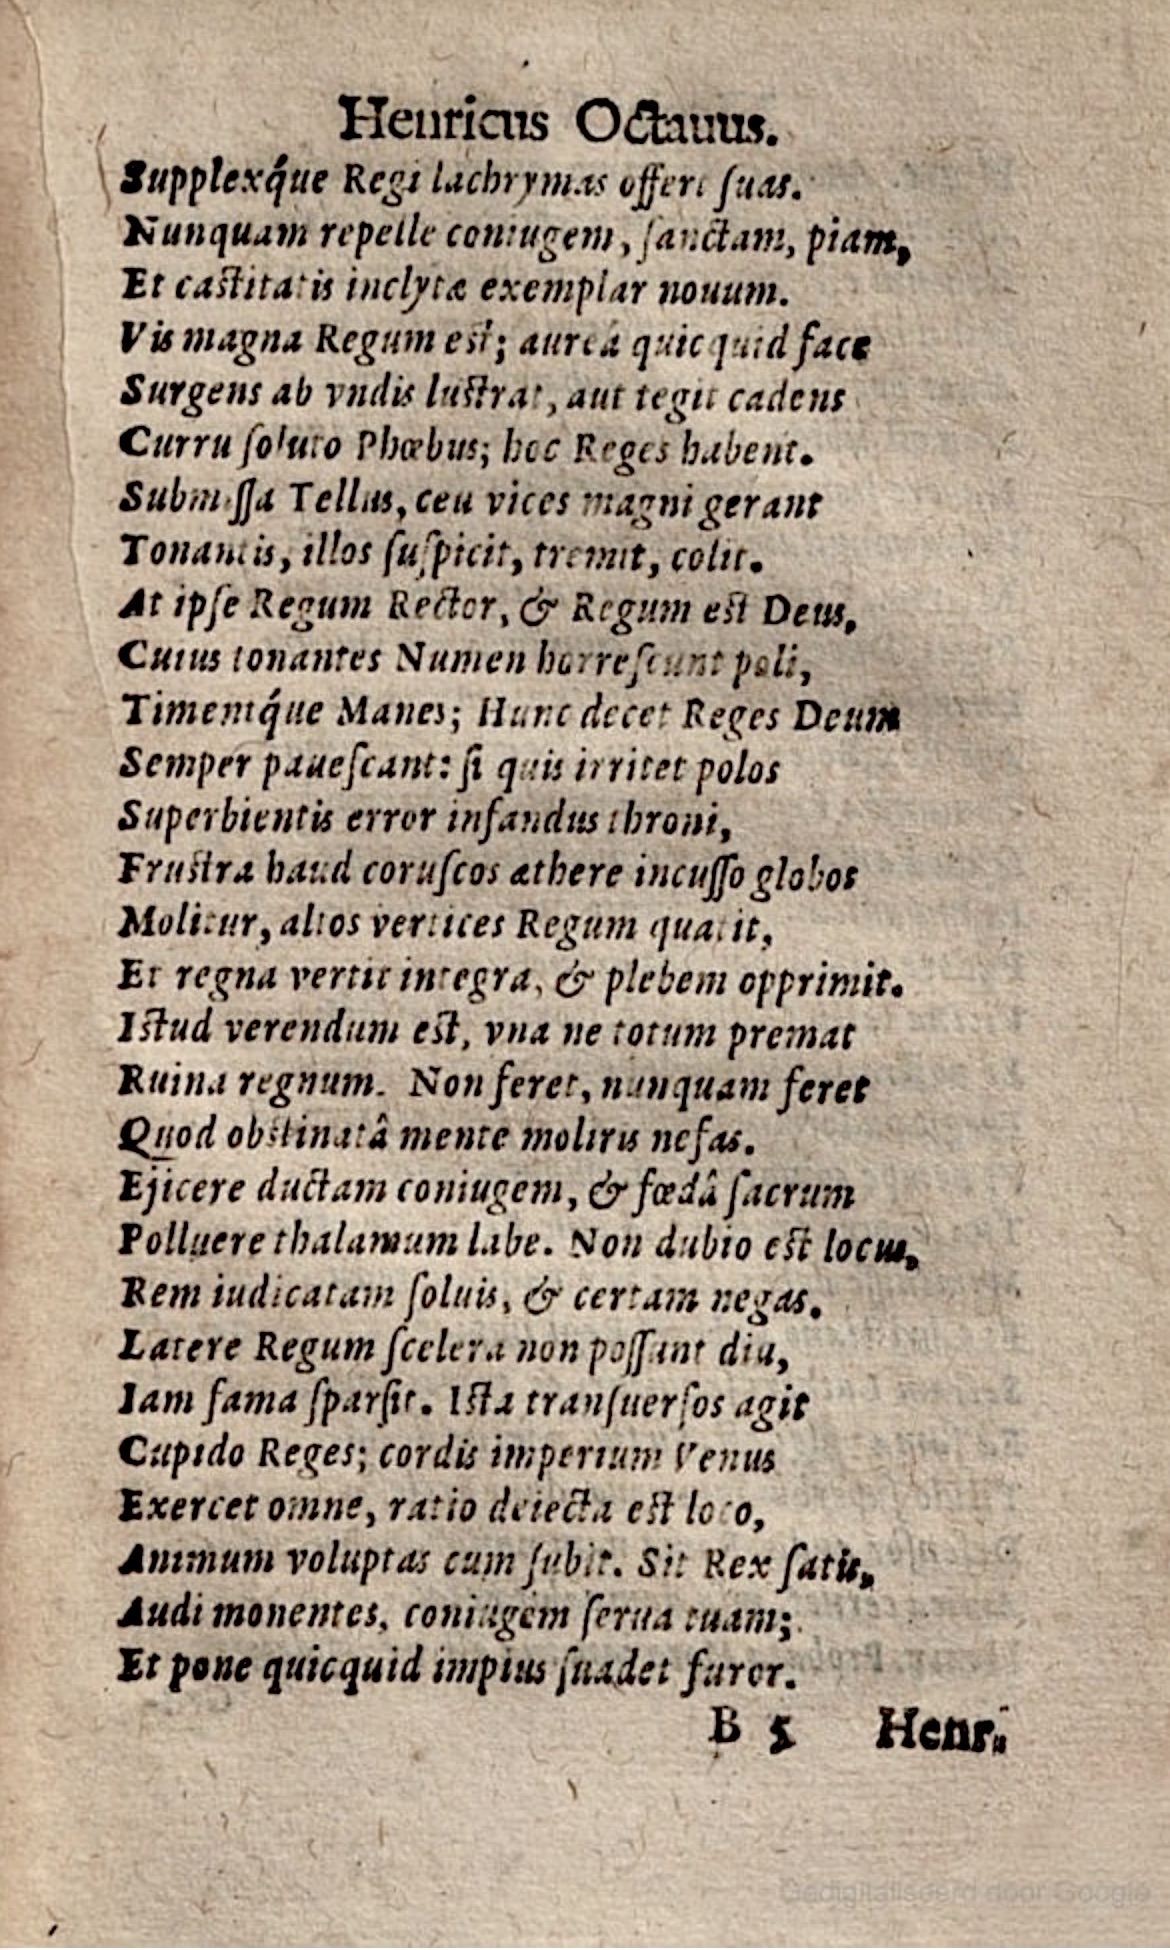 Henricus Octauus.
Supplexq́ue Regi lachrymas offert ſuas.
Nunquam repelle coniugem, ſanctam, piam,
Et caſtitatis inclytæ exemplar nouum.
Vis magna Regum eſt; aureâ quicquid face
Surgens ab vndis luſtrat, aut tegit cadens
Curru ſoluto Phœbus; hoc Reges habent.
Submiſſa Tellus, ceu vices magni gerant
Tonantis, illos ſuſpicit, tremit, colit.
At ipſe Regum Rector, & Regum eſt Deus,
Cuius tonantes Numen horreſcunt poli,
Timentq́ue Manes; Hunc decet Reges Deum
Semper paueſcant: ſi quis irritet polos
Superbientis error infandus throni,
Fruſtra haud coruſcos æthere incuſſo globos
Molitur, altos vertices Regum quatit,
Et regna vertit integra, & plebem opprimit.
Iſtud verendum eſt, vna ne totum premat
Ruina regnum. Non feret, nunquam feret
Quod obſtinatâ mente moliris nefas.
Ejicere ductam coniugem, & fœdâ ſacrum
Polluere thalamum labe. Non dubio eſt locus,
Rem iudicatam ſoluis, & certam negas.
Latere Regum ſcelera non poſſunt diu,
Iam fama ſparſit. Iſta tranſuerſos agit
Cupido Reges; cordis imperium Venus
Exercet omne, ratio deiecta eſt loco,
Animum voluptas cum ſubit. Sit Rex ſatis,
Audi monentes, coniugem ſerua tuam;
Et pone quicquid impius ſuadet furor.
B 5 Henr-
Gedigitaliseerd door Google